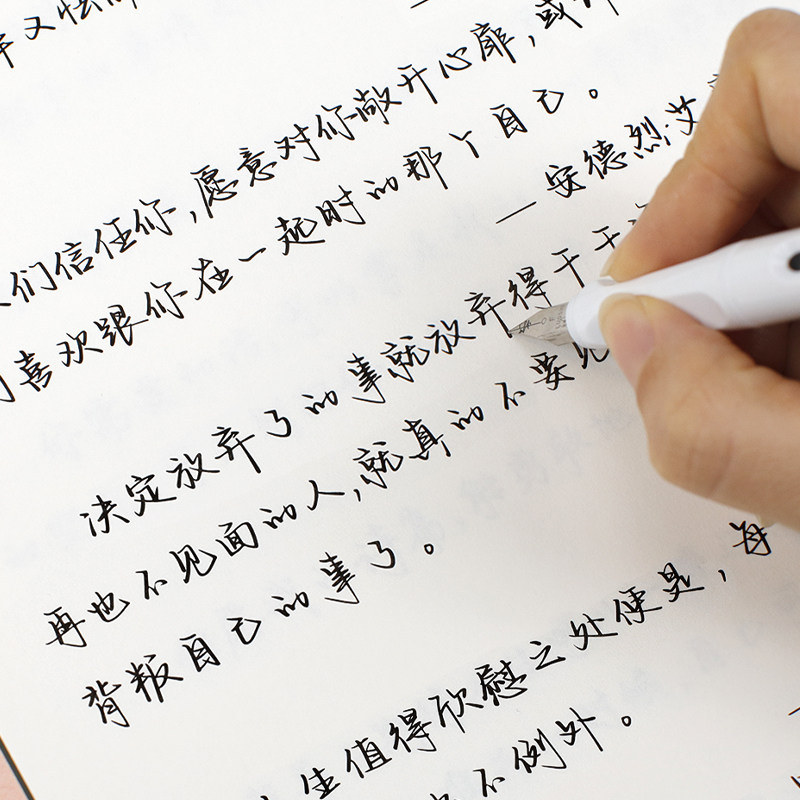 又怯
们信任你,愿意对你敞开心扉,或
喜欢跟你在一起时的那个自己。
—安德烈·艾
决定放弃了的事就放弃得干干
再也不见面的人,就真的不要见
背叛自己的事了。
生值得欣慰之处便是,每
不例外。